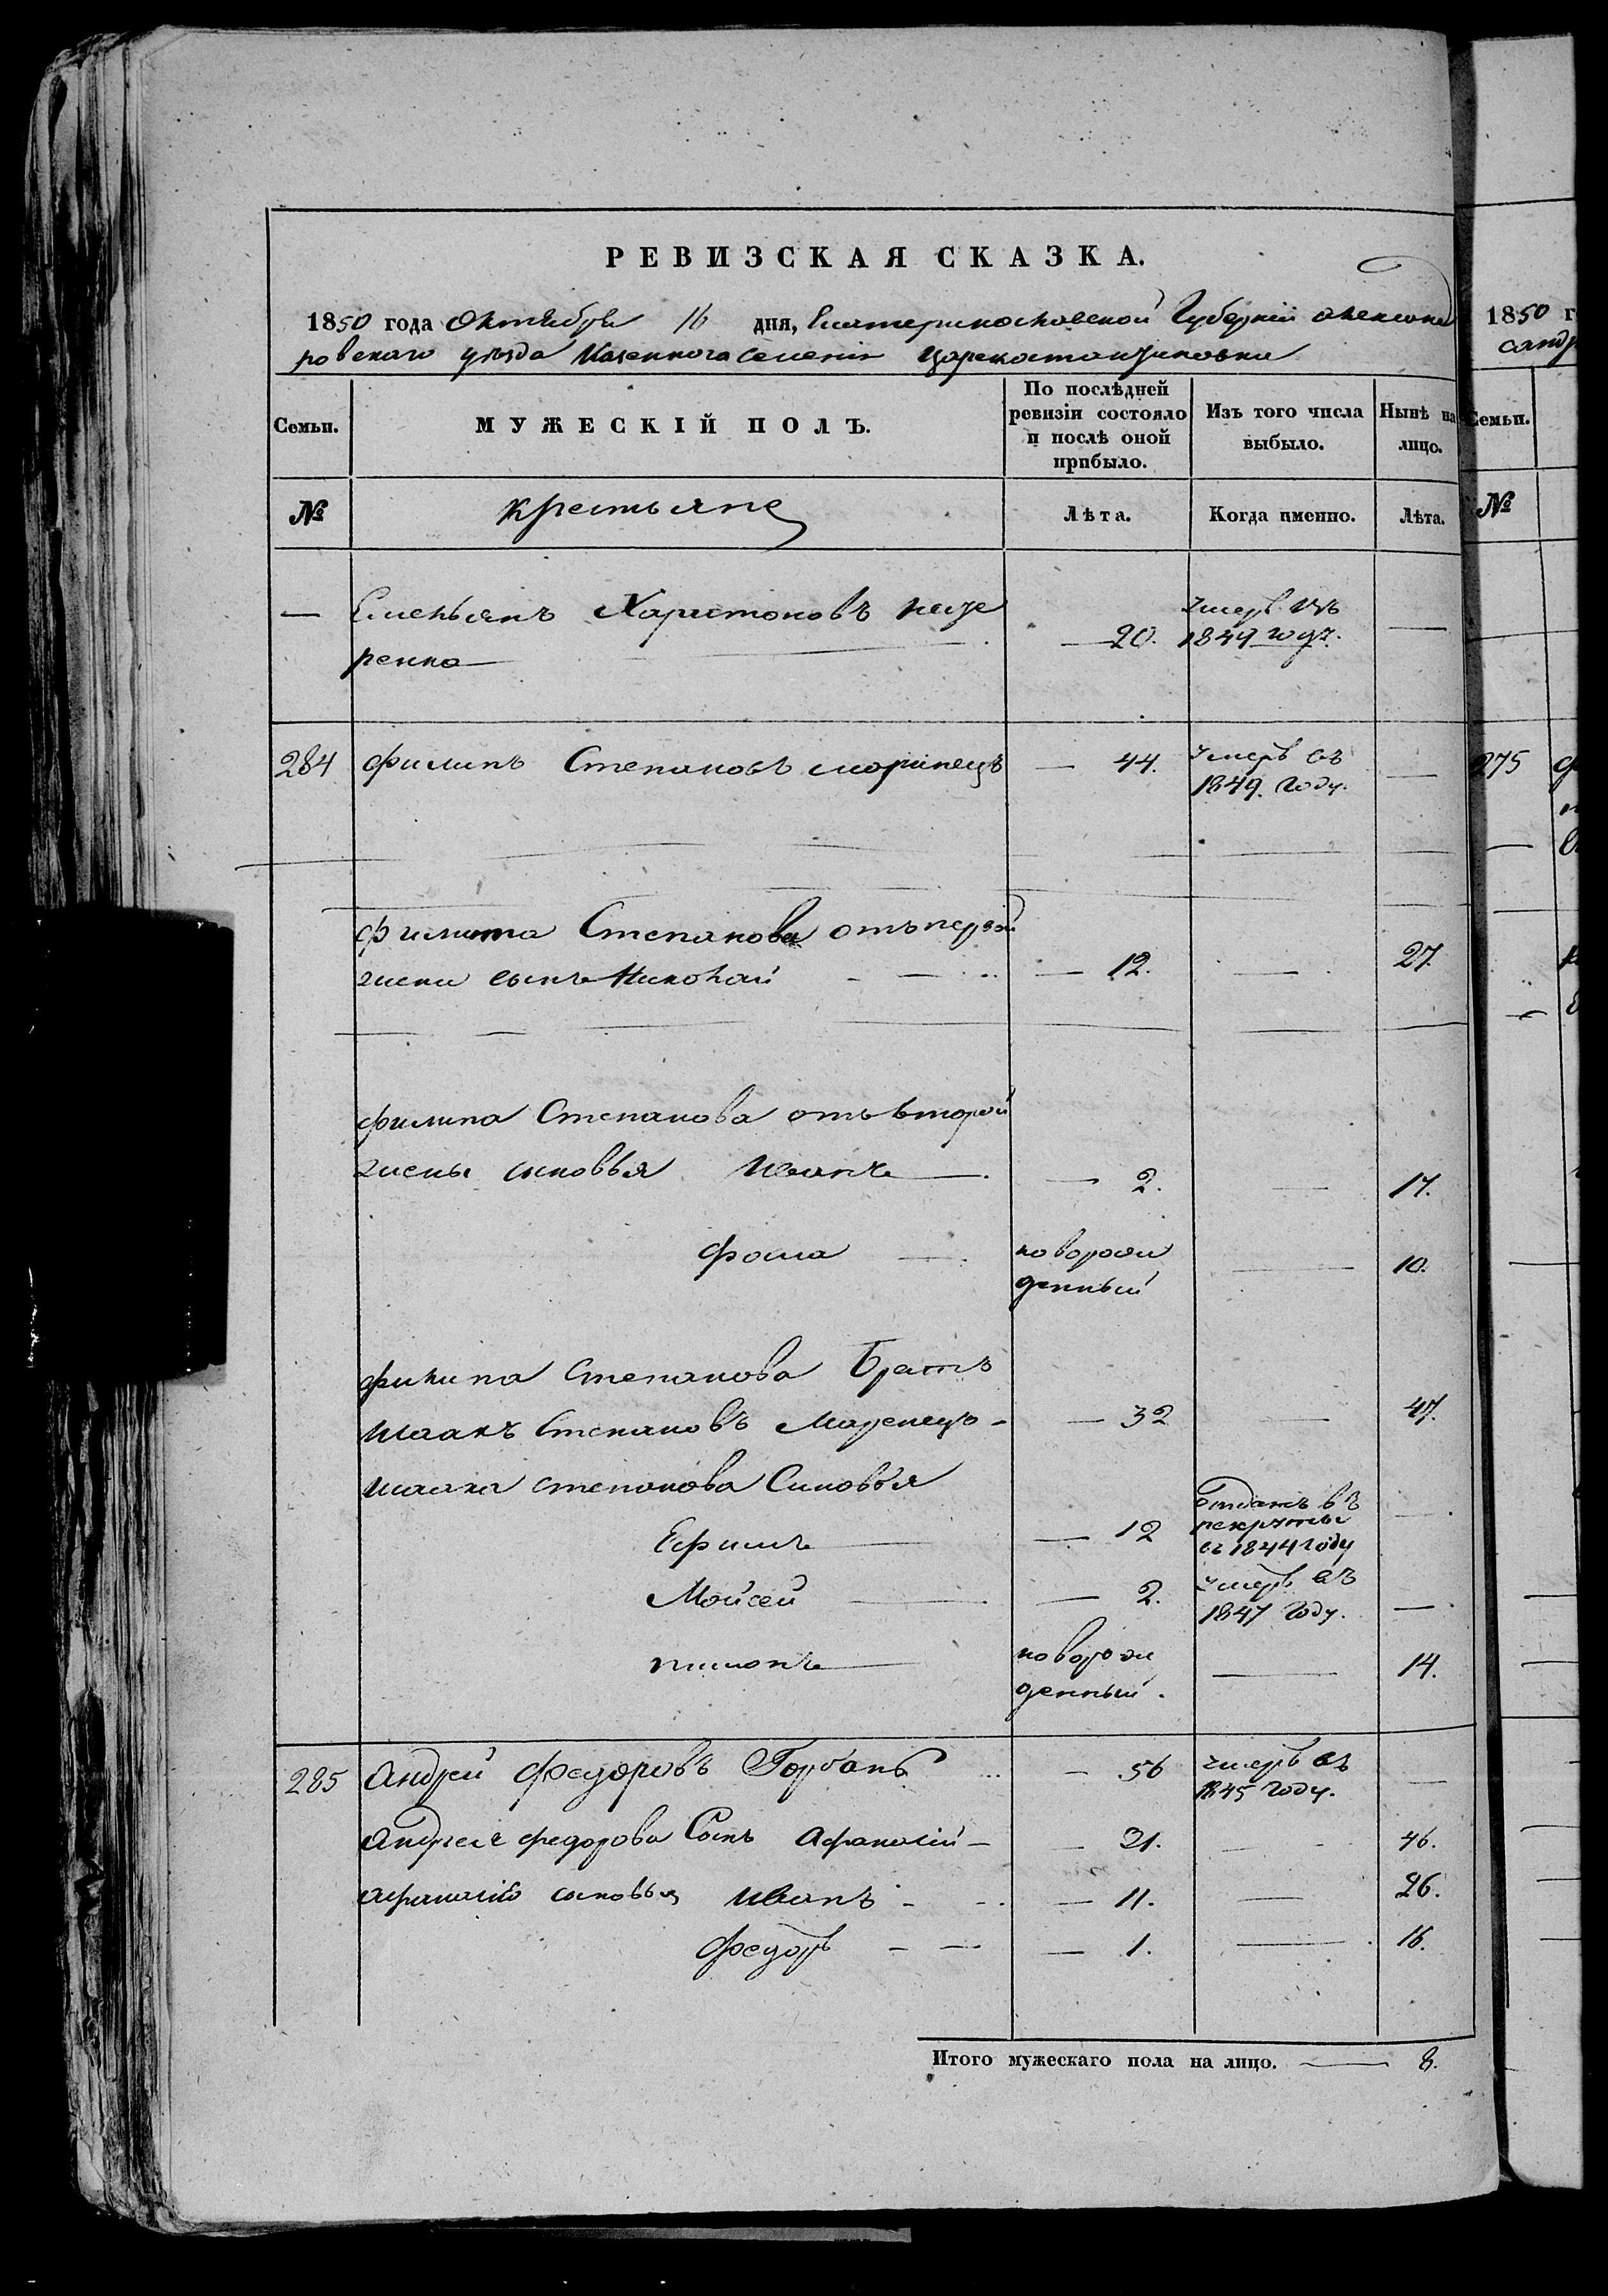 РЕВИЗСКАЯ СКАЗКА.
1850 года Октября 16 дня, Екатеринославской Губерніи Александ
ровскаго уезда Казеннаго селенія Цареконстантиновки
Семьи. МУЖЕСКІЙ ПОЛЪ. По послѣдней ревизіи состояло и послѣ оной прибыло. Изъ того числа выбыло. Нынѣ на лицо.
№ крестьяне Лѣта. Когда именно. Лѣта.
— Емельянъ Харитоновъ
ренко — 20. умеръ въ 1849 году. —
284 Филипъ Степановъ Моринецъ — 44. умеръ въ 1849. году. —
Филипа Степанова отъ первой
жены сынъ Николай — 12. — 27.
Филипа Степанова отъ второй
жены сыновья Иванъ — 2. — 17.
Фома — новорож
денный — 10.
Филипа Степанова Братъ
Исаакъ Степановъ Маренецъ — 32 — 47.
Исаака Степанова Сыновья
Ефимъ — 12 Отданъ въ рекруты въ 1844 году —
Мойсей — 2. умеръ въ 1847 году. —
Пимонъ — новорож
денный. — 14.
285 Андрей Федоровъ Горбань — 56 умеръ въ 1845 году. —
Андрея Федорова Сынъ Афанасій — 31. — 46.
Афанасія сыновья Иванъ — 11. — 26.
Федоръ — 1. — 16.
Итого мужескаго пола на лицо. — 8.
1850 г
сандр
Семьи.
№
275